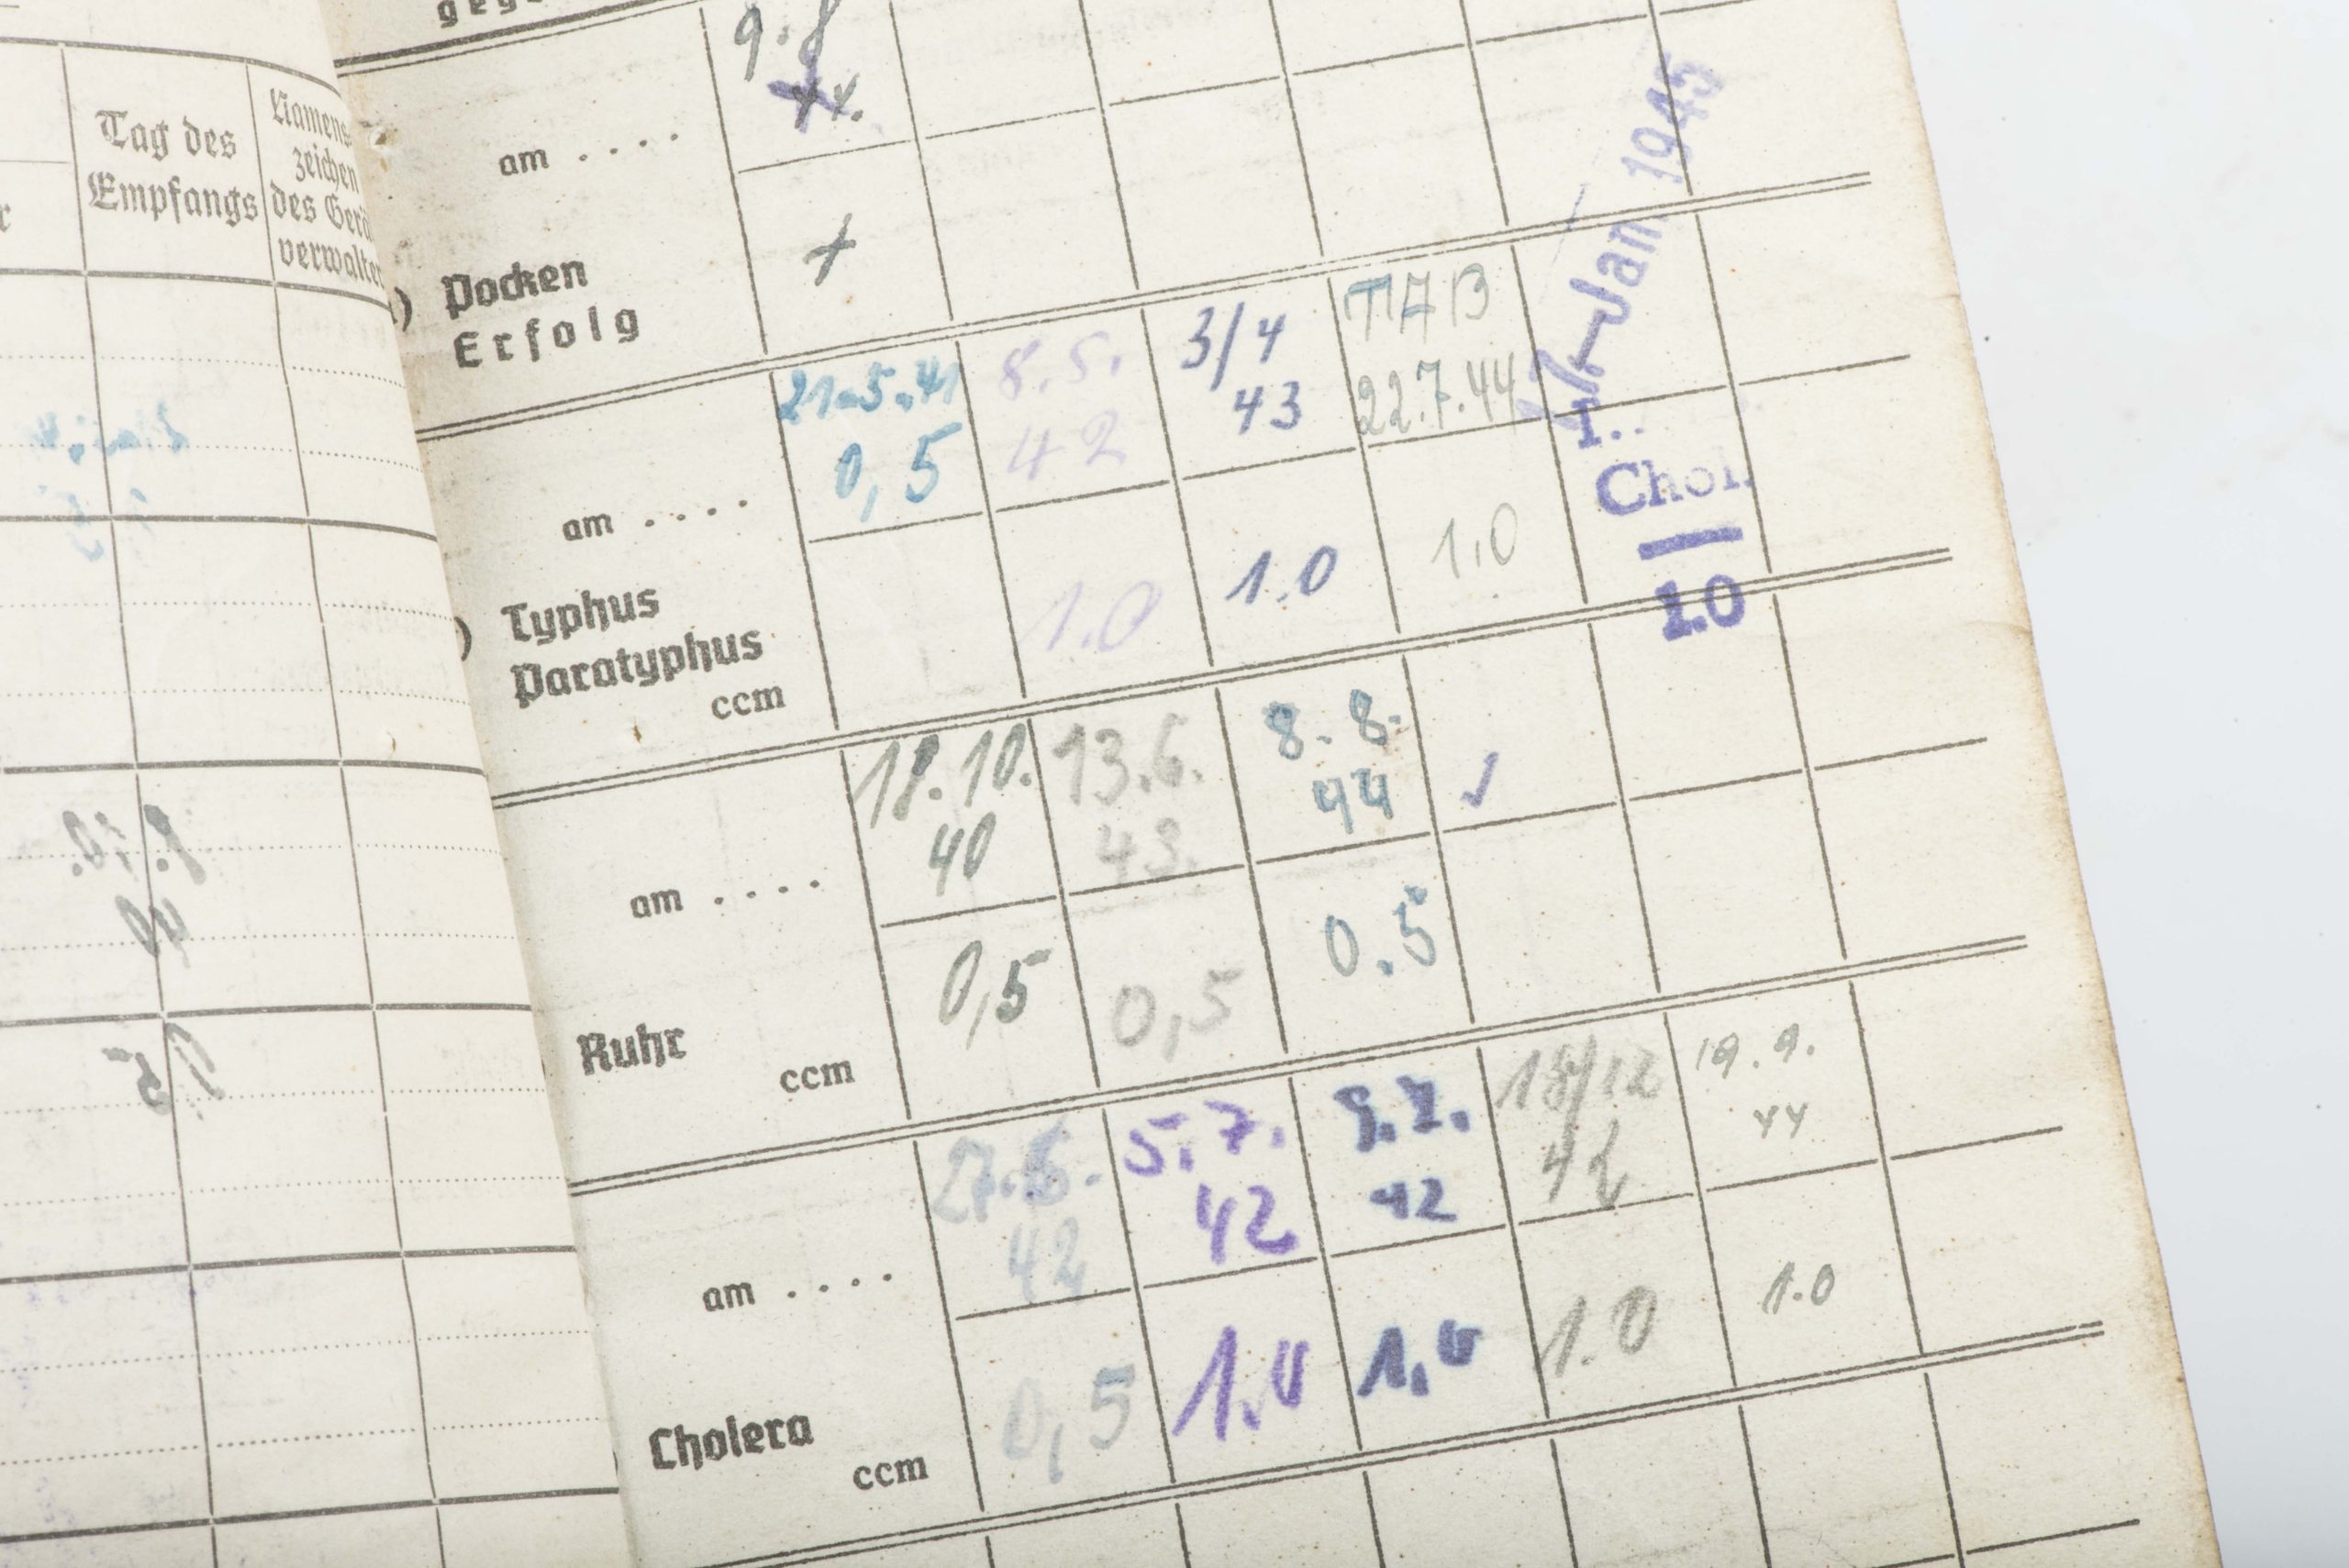 Tag des
Empfangs
Namens-
zeichen
des Gerä
verwalter
am ....
Pocken
Erfolg
+
21.5.41
0,5
8.5.
42
3/4
43
TAB
22.7.44
Jan. 1945
1..
Chol.
1.0
am ....
Typhus
Paratyphus
ccm
1.0
1.0
1.0
18.10.
40
13.6.
43.
8.8.
44
am ....
Ruhr
ccm
0,5
0,5
0.5
42
5.7.
42
42
18/12
42
19.9.
44
am ....
Cholera
ccm
0,5
1.0
1,0
1.0
1.0